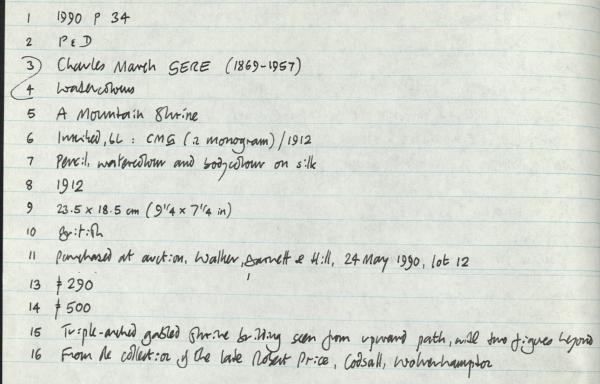 1 1990 P 34
2 P & D
3 Charles March GERE (1869-1957)
4 Watercolours
5 A Mountain Shrine
6 Inscribed, bL : CMG (in monogram) / 1912
7 Pencil, watercolour and bodycolour on silk
8 1912
9 23.5 x 18.5 cm (9 1/4 x 7 1/4 in)
10 British
11 Purchased at auction, Walker, Barnett & Hill, 24 May 1990, lot 12
13 £ 290
14 £ 500
15 Triple-arched gabled shrine building seen from upward path, with two figures beyond
16 From the collection of the late Robert Price, Codsall, Wolverhampton